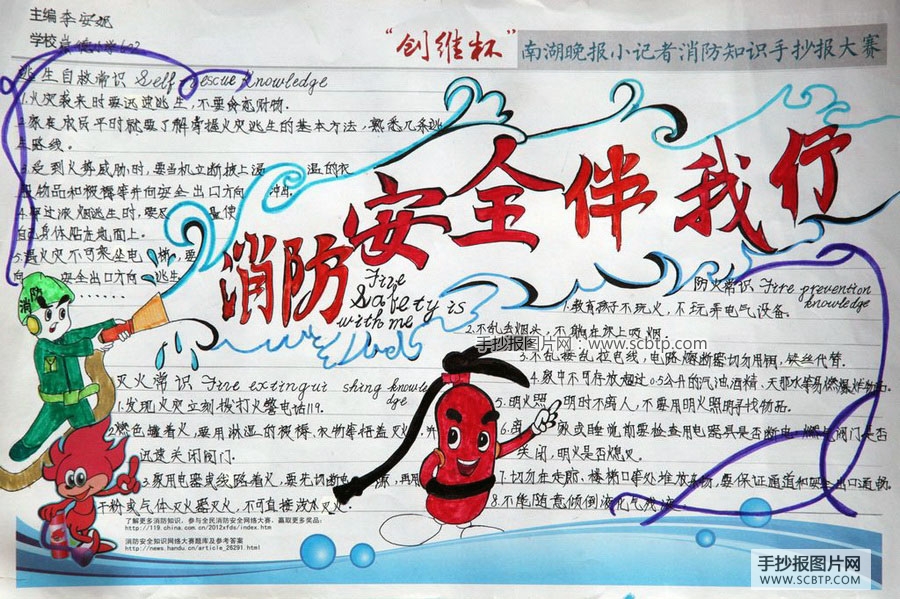 主编 李安妮
学校
"创维杯" 南湖晚报小记者消防知识手抄报大赛
逃生自救常识 Self rescue knowledge
1.火灾袭来时要迅速逃生,不要贪恋财物.
2.家庭成员平时就要了解掌握火灾逃生的基本方法,熟悉几条逃
生路线.
3.受到火势威胁时,要当机立断披上浸湿的衣
物品和被褥等并向安全出口方向冲出.
4.穿过浓烟逃生时,要尽量使
自己身体贴近地面上.
5.遇火灾不可乘坐电梯,要
向安全出口方向逃生
......
消防安全全伴我行
Fire
Safety is
with me
消防
防火常识 Fire prevention
knowledge
1.教育孩子不玩火,不玩弄电气设备.
2.不乱丢烟头,不躺在床上吸烟.
手抄报图片网:www.scbtp.com
3.不乱接乱拉电线,电路熔断器切勿用铜、铁丝代替.
4.家中不可存放超过0.5公升的汽油酒精、天那水等易燃易爆
5.明火照明时不离人,不要用明火照明寻找物品.
6.或睡觉前要检查用电器具是否断电 燃气阀门是否
关闭,明火是否熄灭.
7.切勿在走廊、楼梯口等处堆放杂物,要保证通道和安全出口通畅.
8.不能随意倾倒液化气残液
灭火常识 Fire extingui shing knowle
dge
1.发现火灾立刻拨打火警电话119.
2.燃色罐着火,要用淋湿的被褥、衣物等捂盖灭火
迅速关闭阀门.
3.家用电器或线路着火,要先切断电源,再用
干粉或气体灭火器灭火,不可直接泼水灭火.
了解更多消防知识,参与全民消防安全网络大赛,赢取更多奖品:
http://119.china.com.cn/2012xfds/index.htm
消防安全知识网络大赛题库及参考答案
http://news.handu.cn/article_26291.html
手抄报图片网
WWW.SCBTP.COM